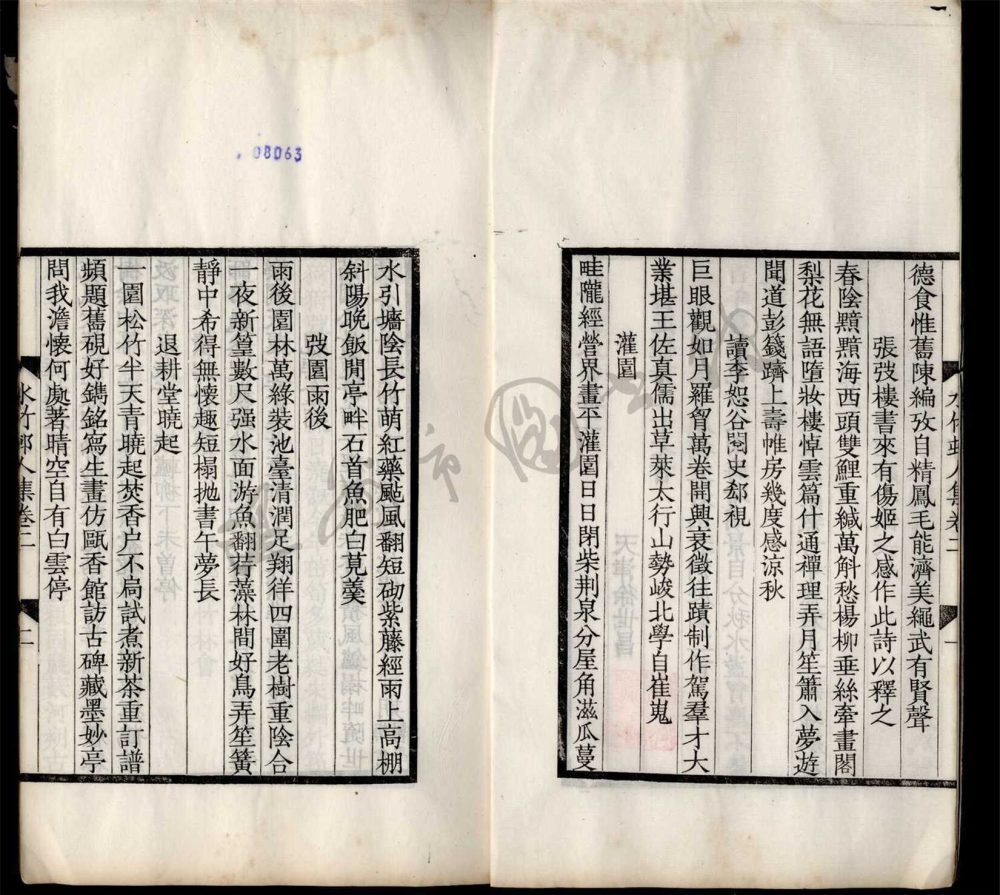 德食惟舊陳編攷自精鳳毛能濟美繩武有賢聲
張弢樓書來有傷姬之感作此詩以釋之
春陰黯黯海西頭雙鯉重緘萬斛愁楊柳垂絲牽畫閣
梨花無語墮妝樓悼雲篇什通禪理弄月笙簫入夢遊
聞道彭籛躋上壽帷房幾度感涼秋
讀李恕谷閱史郄視
巨眼觀如月羅胷萬卷開興衰徵往蹟制作駕羣才大
業堪王佐真儒出草萊太行山勢峻北學自崔嵬
灌園
畦隴經營界畫平灌園日日閉柴荆泉分屋角滋瓜蔓
水竹邨人集卷二
一
水引墻陰長竹萌紅藥颭風翻短砌紫藤經雨上高棚
斜陽晚飯閒亭畔石首魚肥白莧羹
弢園雨後
雨後園林萬綠裝池臺清潤足翔徉四圍老樹重陰合
一夜新篁數尺强水面游魚翻荇藻林間好鳥弄笙簧
靜中希得無懷趣短榻拋書午夢長
退耕堂曉起
一園松竹半天青曉起焚香户不扃試煮新茶重訂譜
頻題舊硯好鐫銘寫生畫仿甌香館訪古碑藏墨妙亭
問我澹懷何處著晴空自有白雲停
水竹邨人集卷二
二
08063